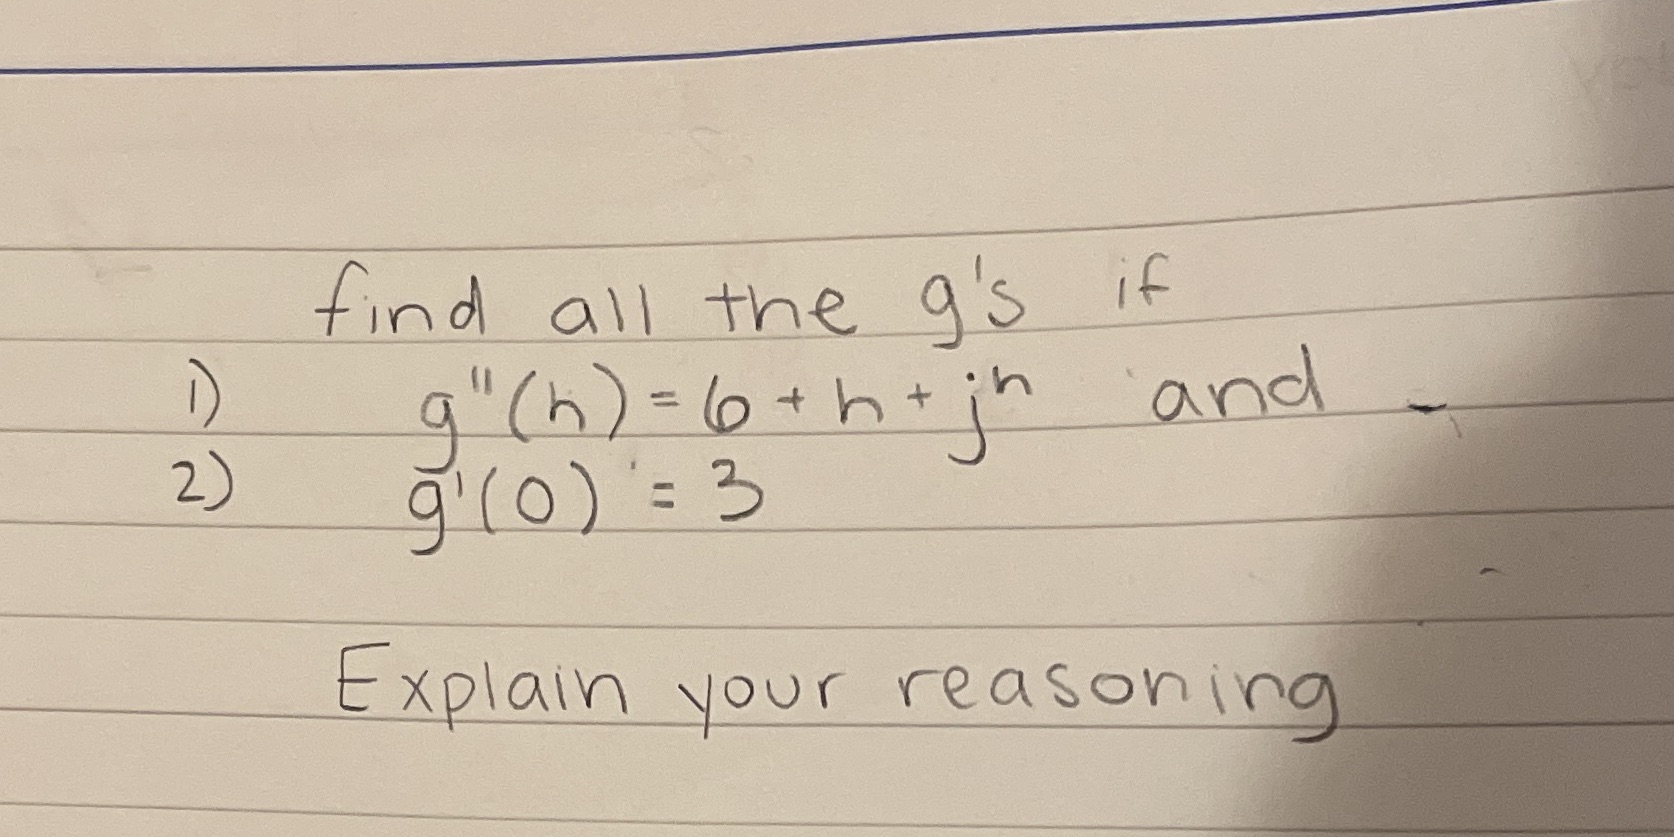 find all the g's if
1) g"(h) = 6 + h + jʰ and
2) g'(0) = 3
Explain your reasoning